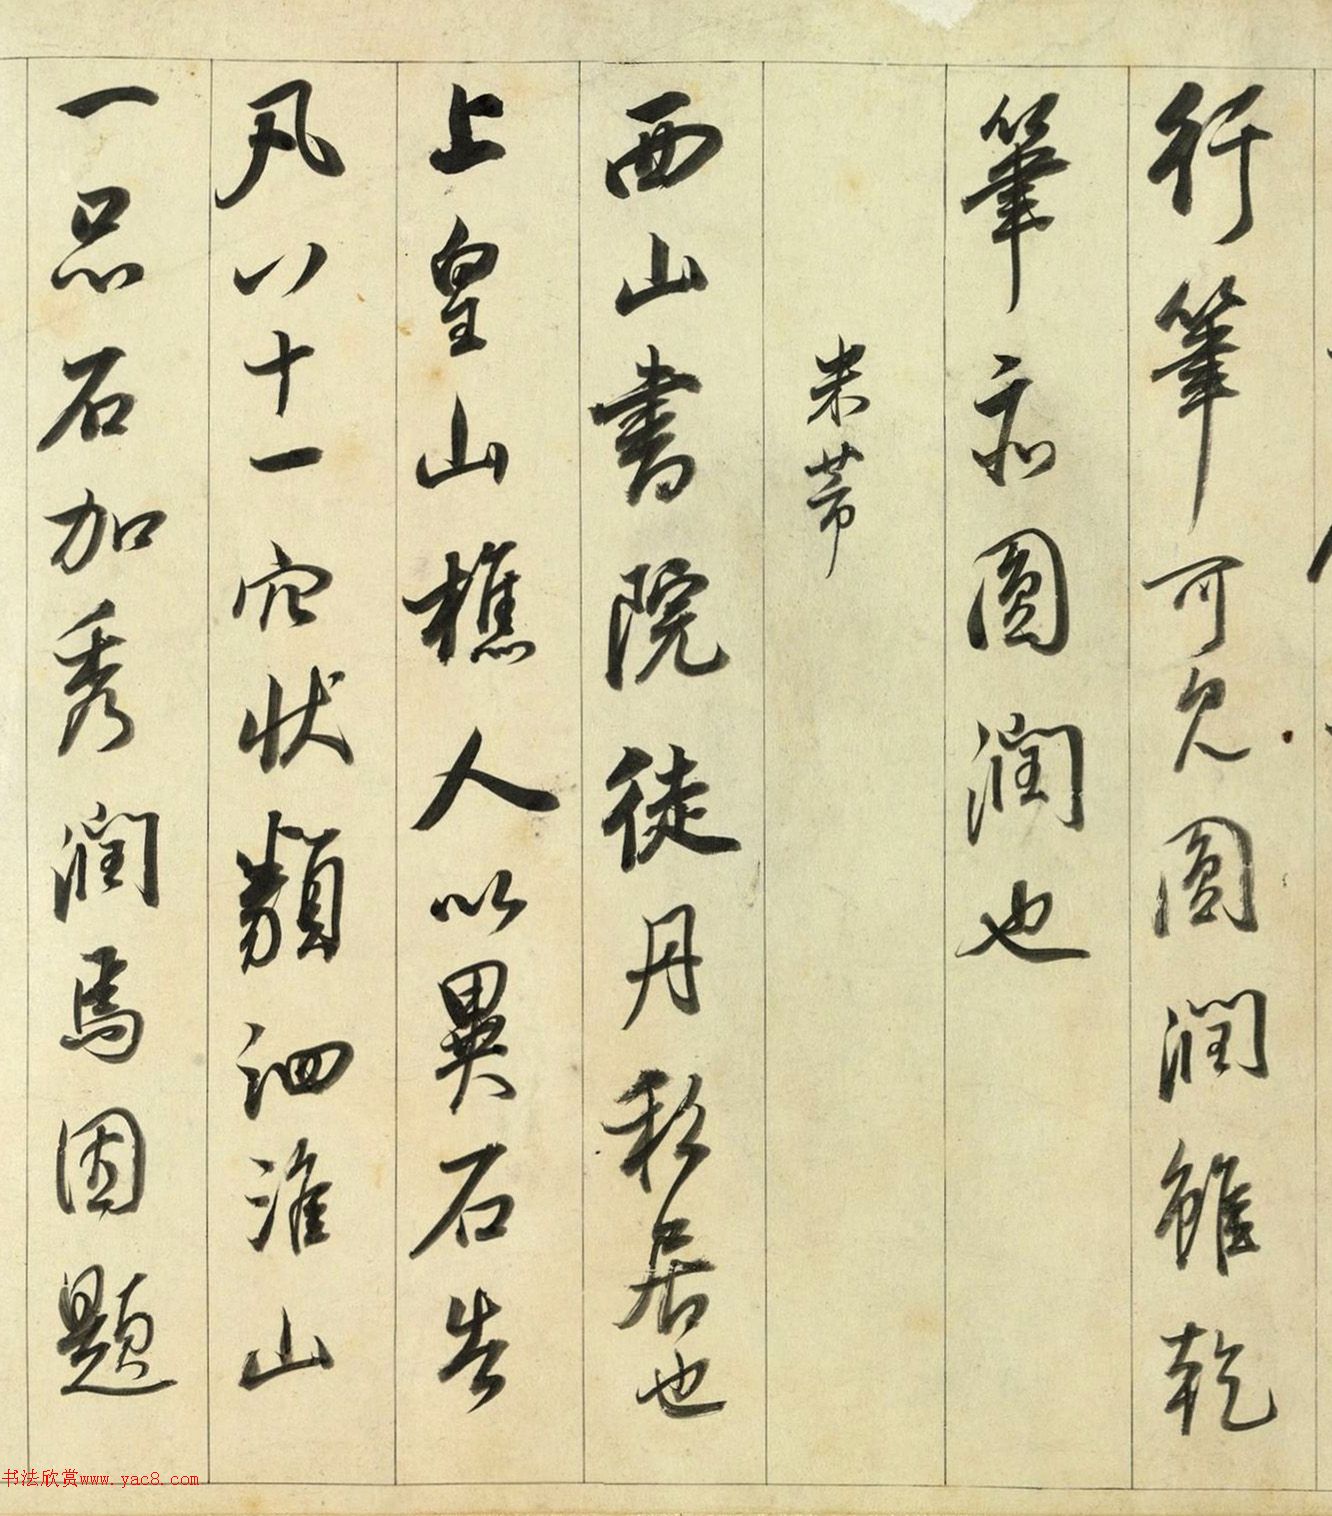 行筆可見圓潤雖乾
筆亦圓潤也
米芾
西山書院徒丹彩居也
上皇山樵人以異石告
凡八十一穴狀類泗淮山
一品石加秀潤焉因題
书法欣赏www.yac8.com